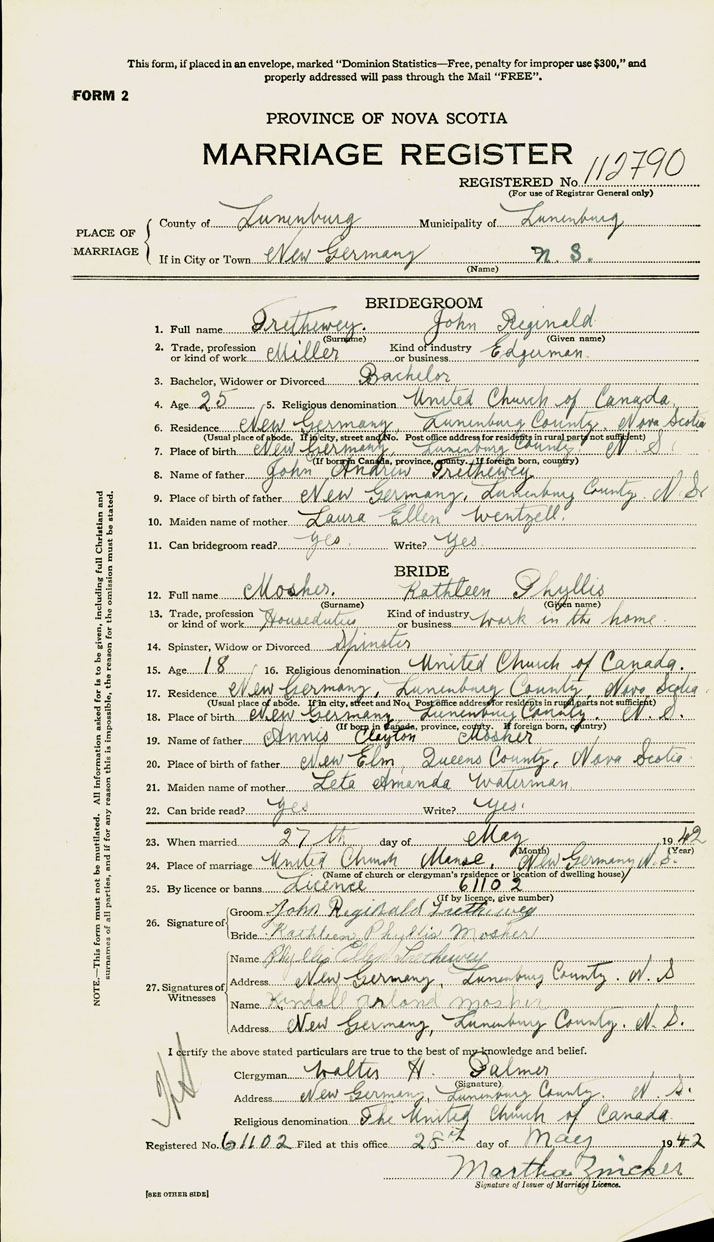 This form, if placed in an envelope, marked "Dominion Statistics—Free, penalty for improper use $300," and
properly addressed will pass through the Mail "FREE".
FORM 2
PROVINCE OF NOVA SCOTIA
MARRIAGE REGISTER
REGISTERED No. 112790
(For use of Registrar General only)
PLACE OF MARRIAGE
County of Lunenburg Municipality of Lunenburg
If in City or Town New Germany N. S.
(Name)
BRIDEGROOM
1. Full name Trethewey. John Reginald
(Surname) (Given name)
2. Trade, profession or kind of work Miller Kind of industry or business Edgerman.
3. Bachelor, Widower or Divorced Bachelor
4. Age 25 5. Religious denomination United Church of Canada.
6. Residence New Germany, Lunenburg County, Nova Scotia
(Usual place of abode. If in city, street and No. Post office address for residents in rural parts not sufficient)
7. Place of birth New Germany, Lunenburg County N. S.
(If born in Canada, province, county. If foreign born, country)
8. Name of father John Andrew Trethewey
9. Place of birth of father New Germany, Lunenburg County. N. S.
10. Maiden name of mother Laura Ellen Wentzell.
11. Can bridegroom read? Yes. Write? Yes.
BRIDE
12. Full name Mosher. Kathleen Phyllis
(Surname) (Given name)
13. Trade, profession or kind of work Houseduties Kind of industry or business Work in the home.
14. Spinster, Widow or Divorced Spinster
15. Age 18 16. Religious denomination United Church of Canada.
17. Residence New Germany, Lunenburg County, Nova Scotia.
(Usual place of abode. If in city, street and No. Post office address for residents in rural parts not sufficient)
18. Place of birth New Germany, Lunenburg County. N. S.
(If born in Canada, province, county. If foreign born, country)
19. Name of father Annis Clayton Mosher
20. Place of birth of father New Elm, Queens County, Nova Scotia.
21. Maiden name of mother Leta Amanda Waterman
22. Can bride read? Yes Write? Yes.
23. When married 27th day of May 1942
(Month) (Year)
24. Place of marriage United Church Manse, New Germany N. S.
(Name of church or clergyman's residence or location of dwelling house)
25. By licence or banns Licence 61102
(If by licence, give number)
26. Signature of
Groom John Reginald Trethewey
Bride Kathleen Phyllis Mosher
27. Signatures of Witnesses
Name Phyllis Ellen Trethewey
Address New Germany, Lunenburg County. N. S
Name Kendall Arland Mosher
Address New Germany, Lunenburg County. N. S.
I certify the above stated particulars are true to the best of my knowledge and belief.
Clergyman Walter H. Palmer
(Signature)
Address New Germany, Lunenburg County. N. S.
Religious denomination The United Church of Canada
Registered No. 61102 Filed at this office 28th day of May 1942
Martha Zincker
Signature of Issuer of Marriage Licence.
[SEE OTHER SIDE]
NOTE.—This form must not be mutilated. All Information asked for is to be given, including full Christian and
surnames of all parties, and if for any reason this is impossible, the reason for the omission must be stated.